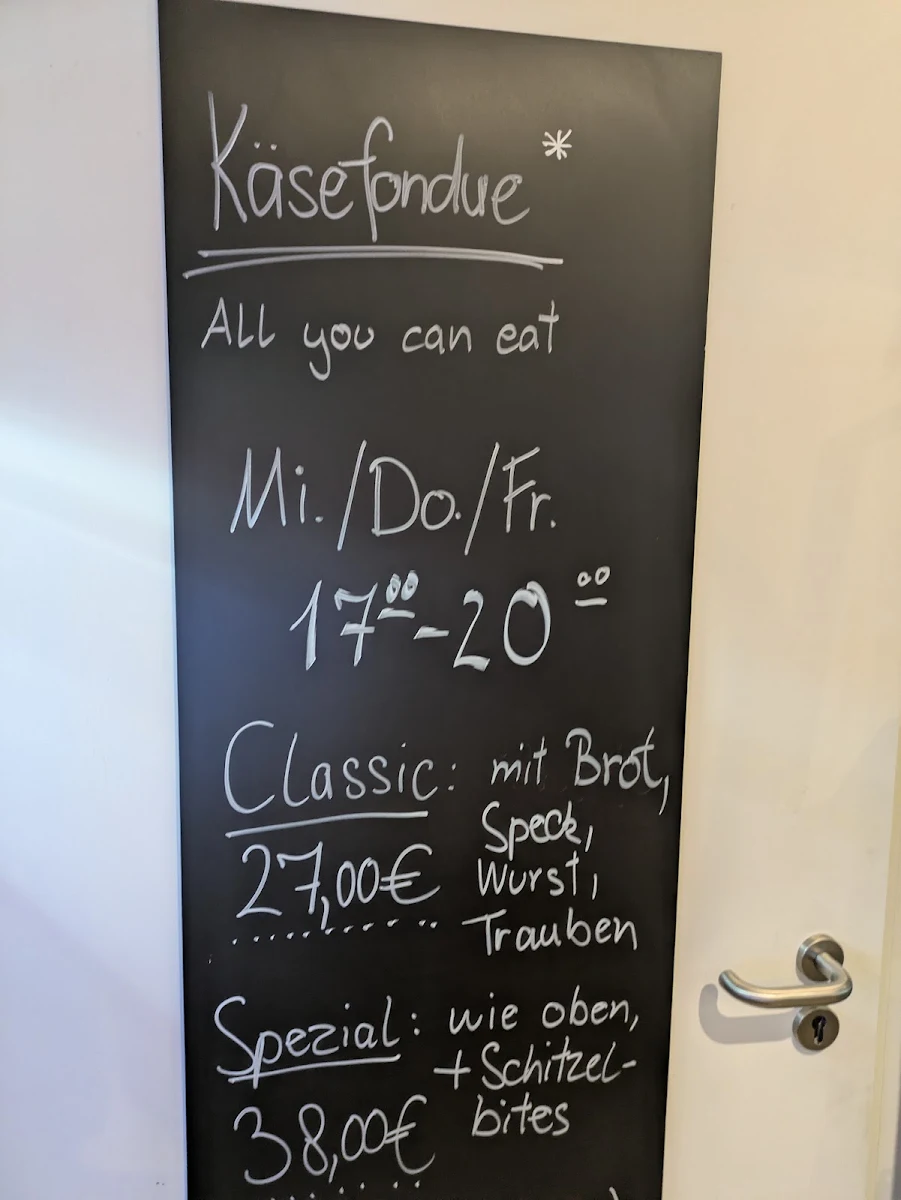 Käsefondue *
All you can eat
Mi./Do./Fr.
17⁰⁰-20⁰⁰
Classic: mit Brot,
Speck,
27,00€ Wurst,
Trauben
Spezial: wie oben,
+ Schitzel-
38,00€ bites